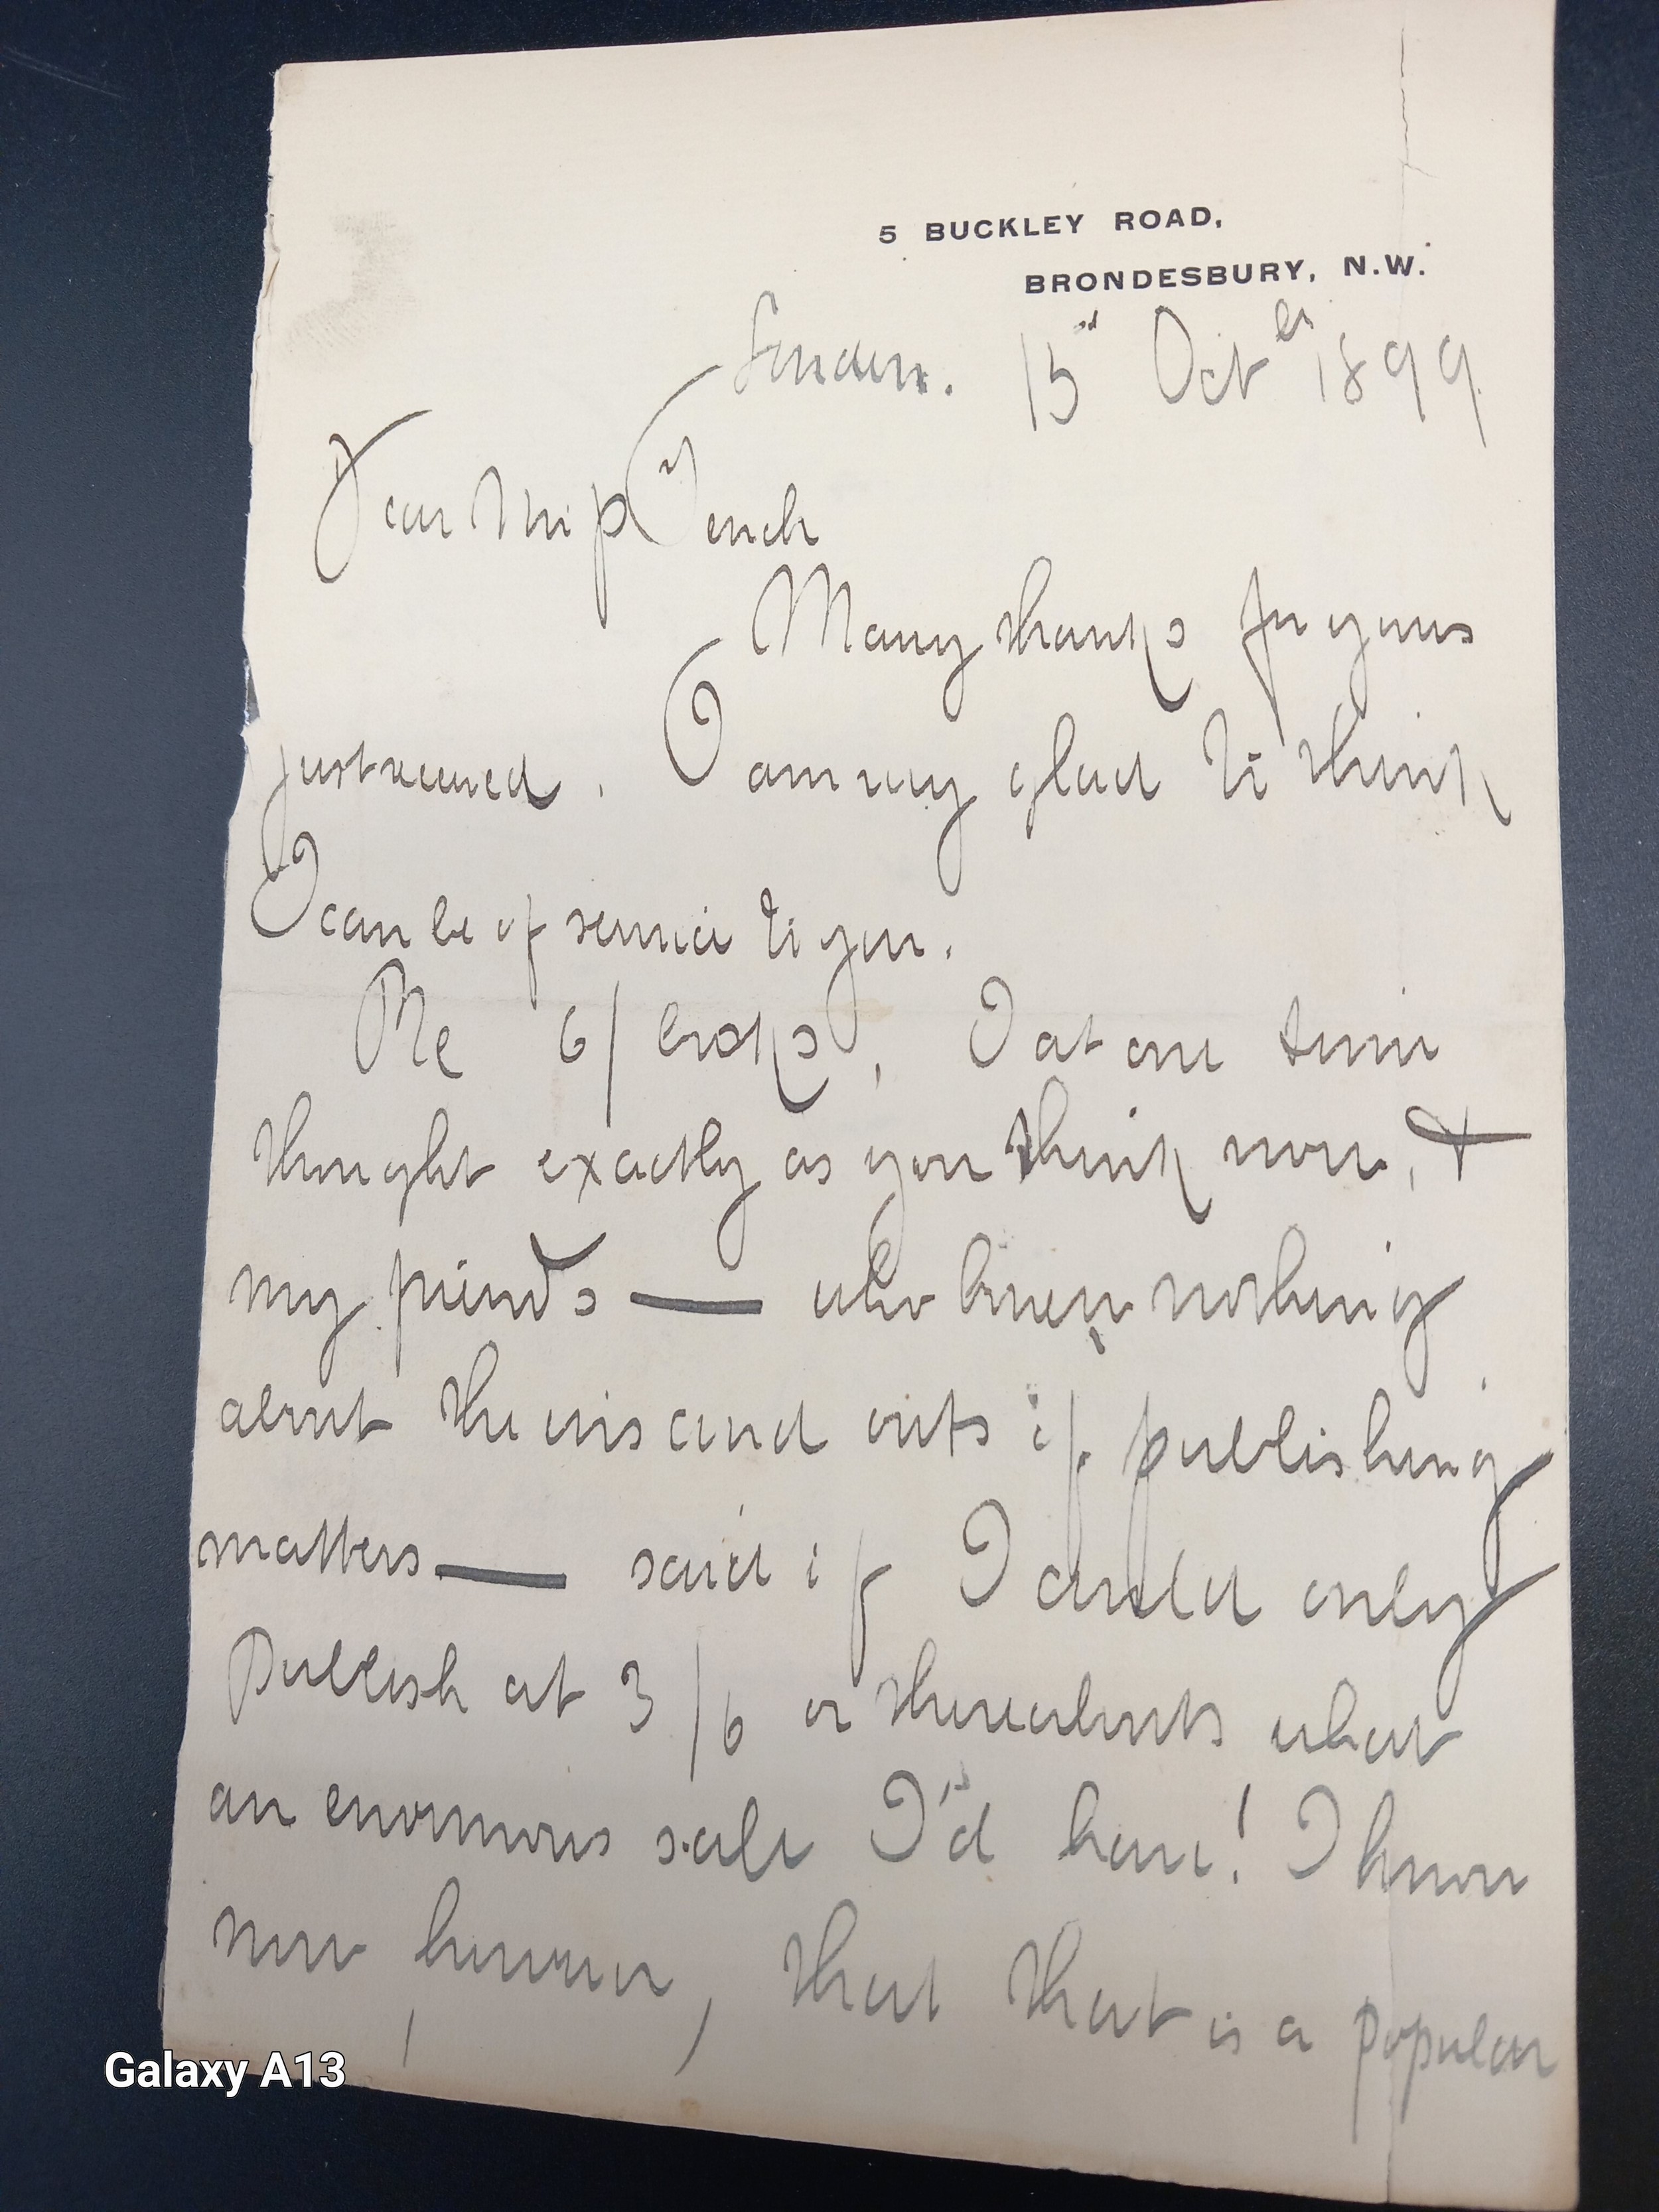 5 BUCKLEY ROAD,
BRONDESBURY, N.W.
London. 15 Octer 1899.
Dear Miss Tench
Many thanks for yours
just received. I am very glad to think
I can be of service to you.
Re 6/ books, I at one time
thought exactly as you think now, &
my friends — who knew nothing
about the ins and outs of publishing
matters — said if I could only
publish at 3/6 or thereabouts what
an enormous sale I'd have! I know
now, however, that that is a popular
Galaxy A13